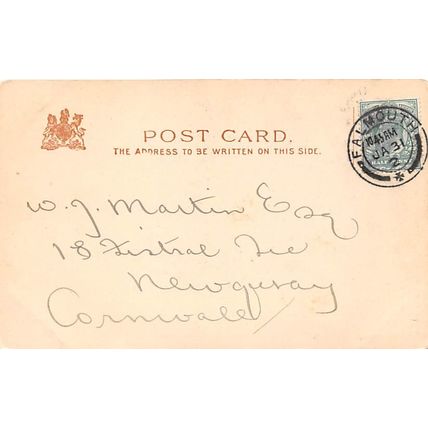 POST CARD.
THE ADDRESS TO BE WRITTEN ON THIS SIDE.
FALMOUTH
10.45 AM
JA 31
2
HALF
W. J. Martin Esq
18 Fistral Tce
Newquay
Cornwall